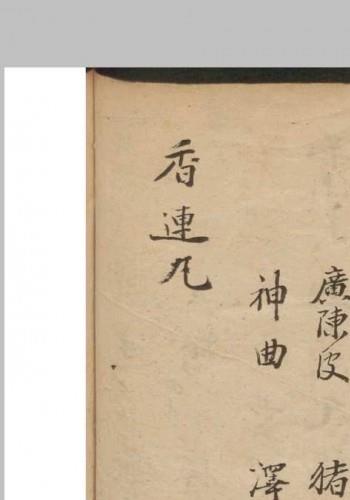 廣陳皮 猪
神曲 澤
香連丸